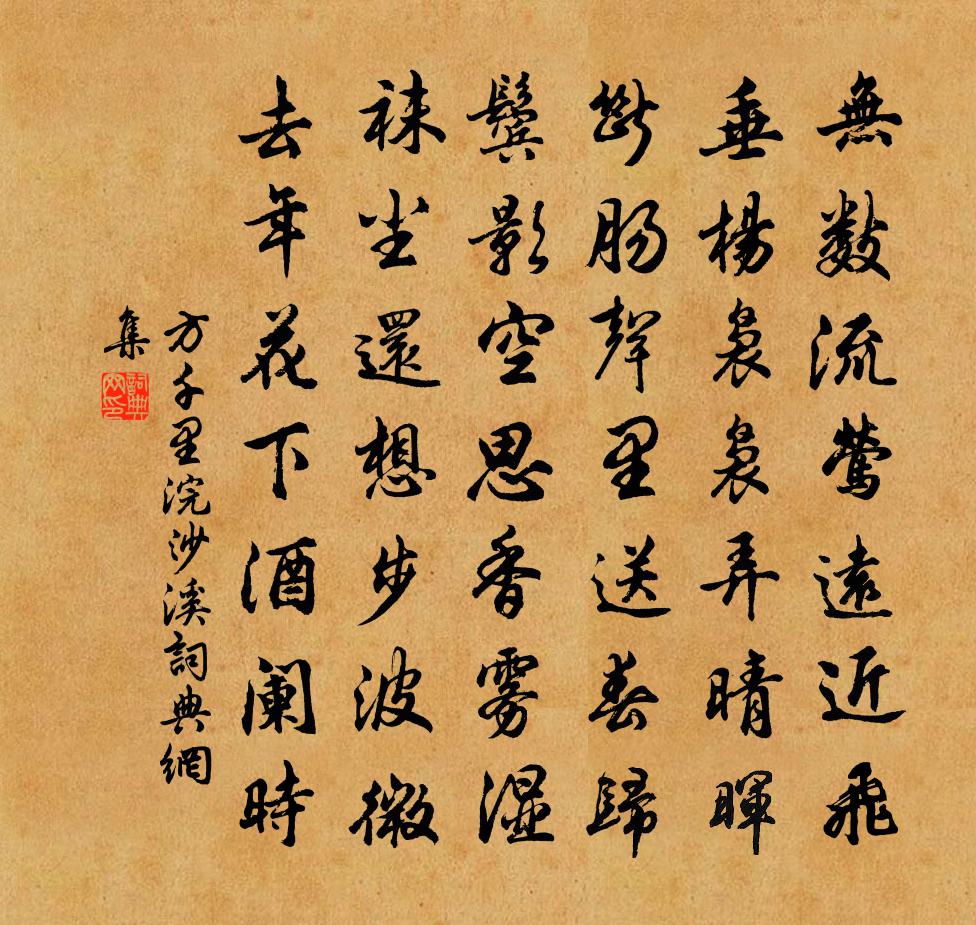 無數流鶯遠近飛
垂楊裊裊弄晴暉
斷腸聲里送春歸
鬢影空思香霧濕
袜尘還想步波微
去年花下酒阑時
方千里浣沙溪詞典網
集
詞典
网印